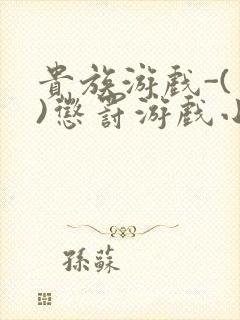 貴族游戲-(
)懲罰游戲小
孫蘇